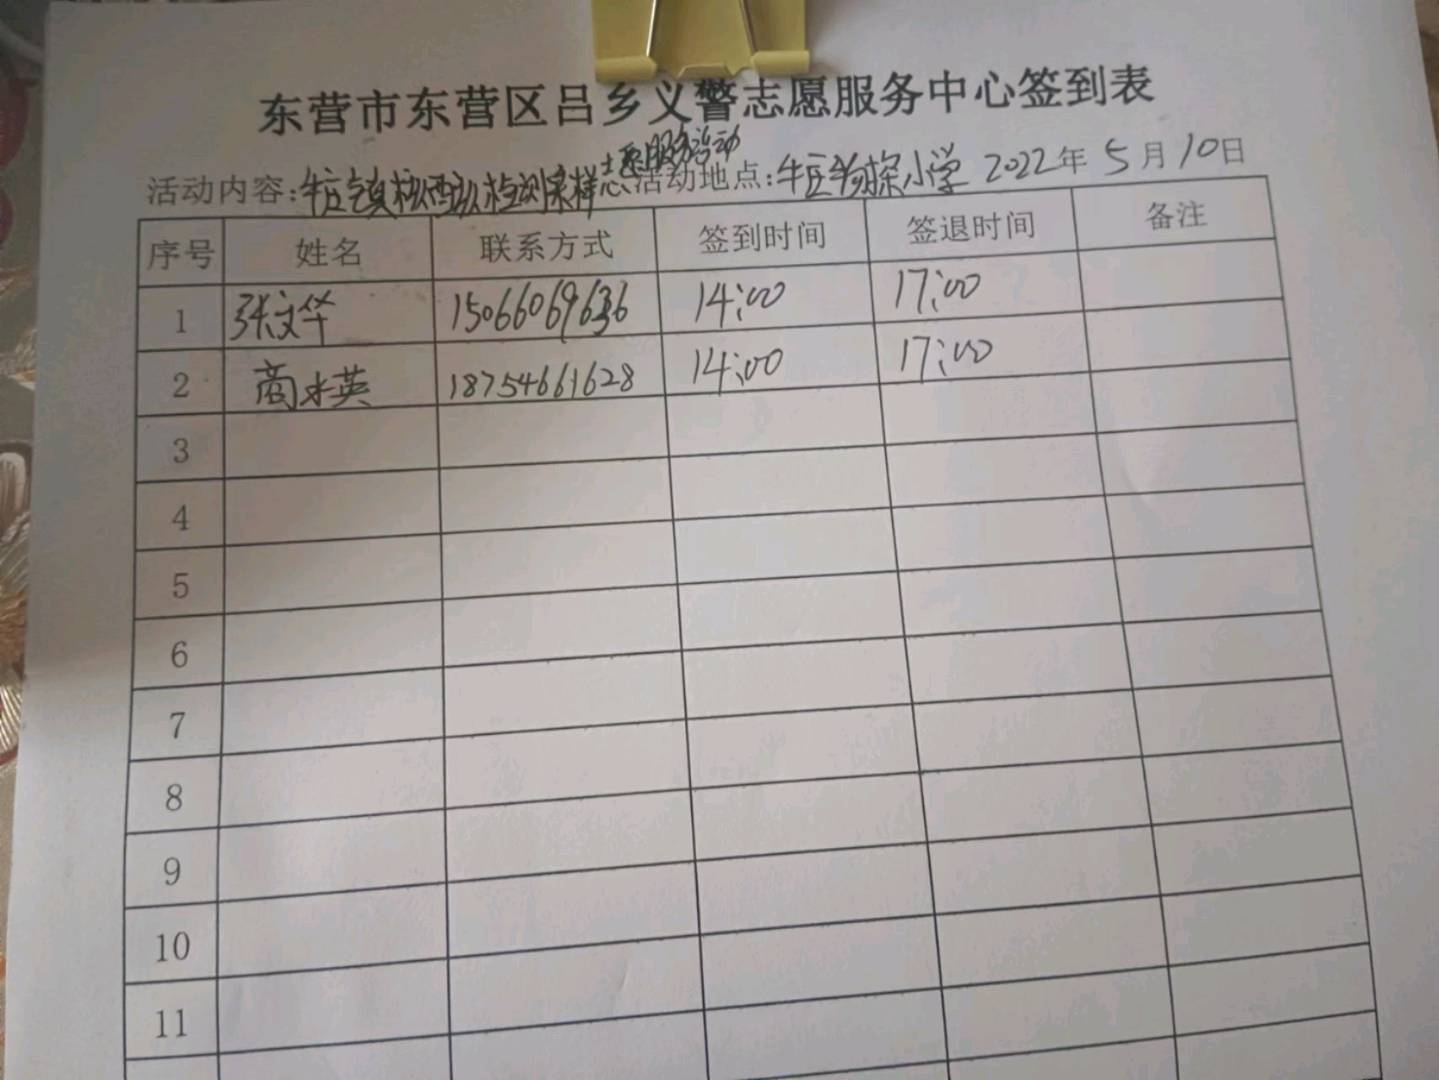 东营市东营区吕乡义警志愿服务中心签到表
志愿服务活动
活动内容:牛庄镇核酸检测采样 活动地点:牛庄物探小学 2022年 5月10日
序号 姓名 联系方式 签到时间 签退时间 备注
1 张文华 15066069636 14:00 17:00
2 商水英 18754661628 14:00 17:00
3
4
5
6
7
8
9
10
11